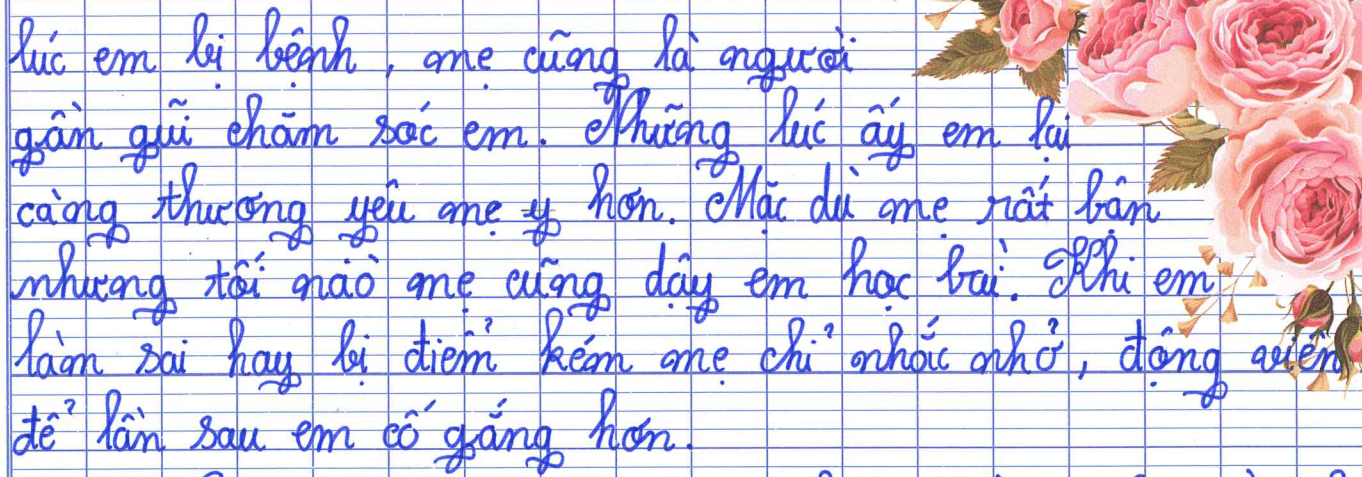 lúc em bị bệnh, mẹ cũng là người
gần gũi chăm sóc em. Những lúc ấy em lại
càng thương yêu mẹ y hơn. Mặc dù mẹ rất bận
nhưng tối nào mẹ cũng dậy em học bài. Khi em
làm sai hay bị điểm kém mẹ chỉ nhắc nhở, động viên
để lần sau em cố gắng hơn.